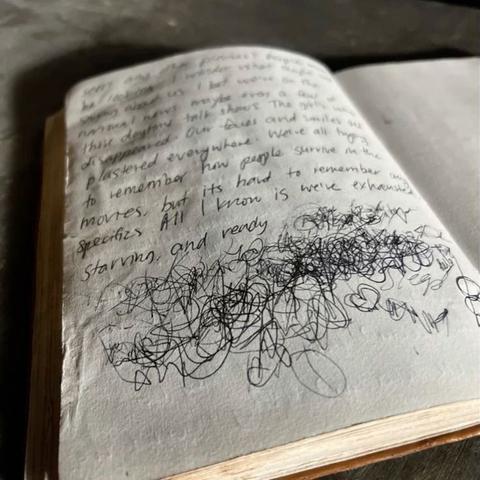 be looking. I wonder what people are
saying about us. I bet we're on the
national news maybe even a few of
those daytime talk shows. The girls who
disappeared. Our faces and smiles are
plastered everywhere. We're all trying
to remember how people survive in the
movies, but its hard to remember any
specifics. All I know is we're exhausted
starving, and ready